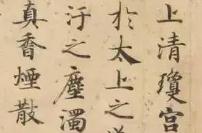 上清瓊宮
於太上之
汙之塵濁
真香煙散